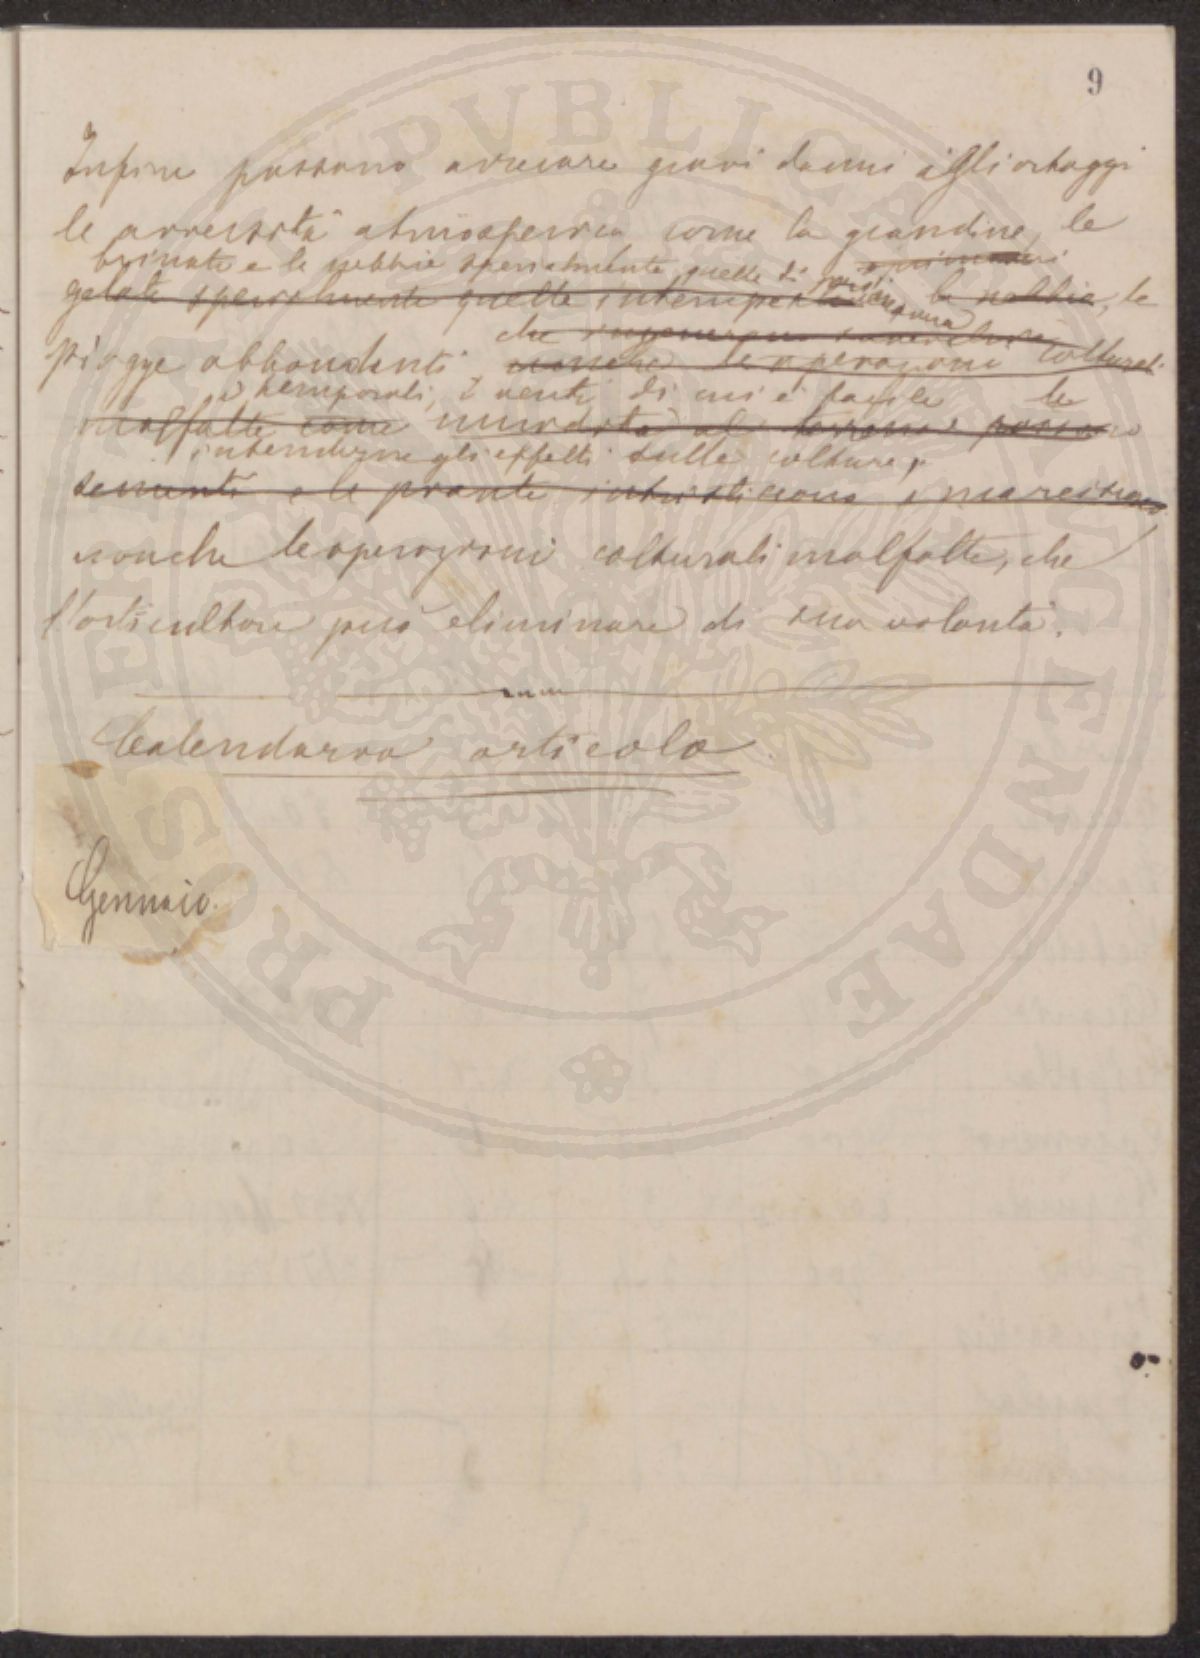 9
Infine possono arrecare gravi danni agli ortaggi
le avversità atmosferica come la grandine, le
brinate e le nebbie specialmente quelle di
gelate specialmente quelle intempestive la nebbia, le
che
piogge abbondanti, nonché le operazioni colturali
i temporali, i venti di cui è facile le
malfatte come umidità al terreno e possono
intenderne gli effetti sulle colture,
sementi e le piante intristiscono, marciscono
nonche le operazioni colturali malfatte, che
l'orticultore può eliminare di sua volontà.
Calendario orticolo
Gennaio.
PROSPERITATI PVBLICAE AVGENDAE